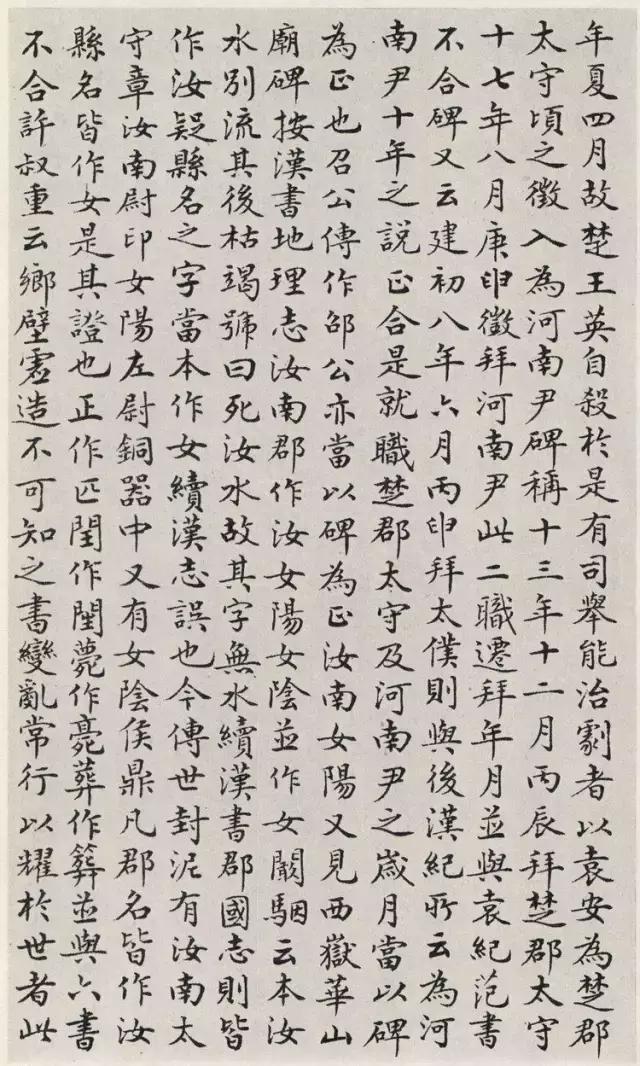 年夏四月故楚王英自殺於是有司舉能治劇者以袁安為楚郡
太守頃之徵入為河南尹碑稱十三年十二月丙辰拜楚郡太守
十七年八月庚申徵拜河南尹此二職遷拜年月並與袁紀范書
不合碑又云建初八年六月丙申拜太僕則與後漢紀所云為河
南尹十年之說正合是就職楚郡太守及河南尹之歲月當以碑
為正也召公傳作邵公亦當以碑為正汝南女陽又見西嶽華山
廟碑按漢書地理志汝南郡作汝女陽女陰並作女闞駰云本汝
水別流其後枯竭號曰死汝水故其字無水續漢書郡國志則皆
作汝疑縣名之字當本作女續漢志誤也今傳世封泥有汝南太
守章汝南尉印女陽左尉銅器中又有女陰侯鼎凡郡名皆作汝
縣名皆作女是其證也正作㱏閏作閠薨作薧葬作䇯並與六書
不合許叔重云鄉壁虛造不可知之書變亂常行以耀於世者此